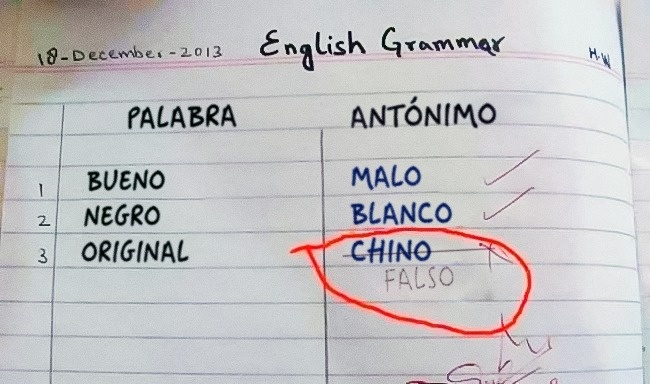 18-December-2013 English Grammar H.W
PALABRA ANTÓNIMO
1 BUENO MALO
2 NEGRO BLANCO
3 ORIGINAL CHINO
FALSO